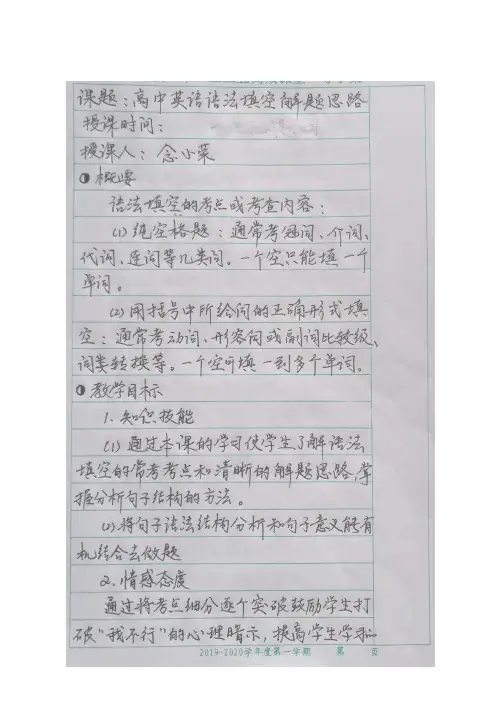 课题：高中英语语法填空解题思路
授课时间：
授课人：念小菜
概要
语法填空的考点或考查内容：
(1)纯空格题：通常考冠词、介词、
代词、连词等几类词。一个空只能填一个
单词。
(2)用括号中所给词的正确形式填
空：通常考动词、形容词或副词比较级、
词类转换等。一个空可填一到多个单词。
教学目标
1. 知识技能
(1)通过本课的学习使学生了解语法
填空的常考考点和清晰的解题思路，掌
握分析句子结构的方法。
(2)将句子语法结构分析和句子意义能有
机结合去做题
2. 情感态度
通过将考点细分逐个突破鼓励学生打
破"我不行"的心理暗示，提高学生学
2019-2020学年度第一学期 第 页